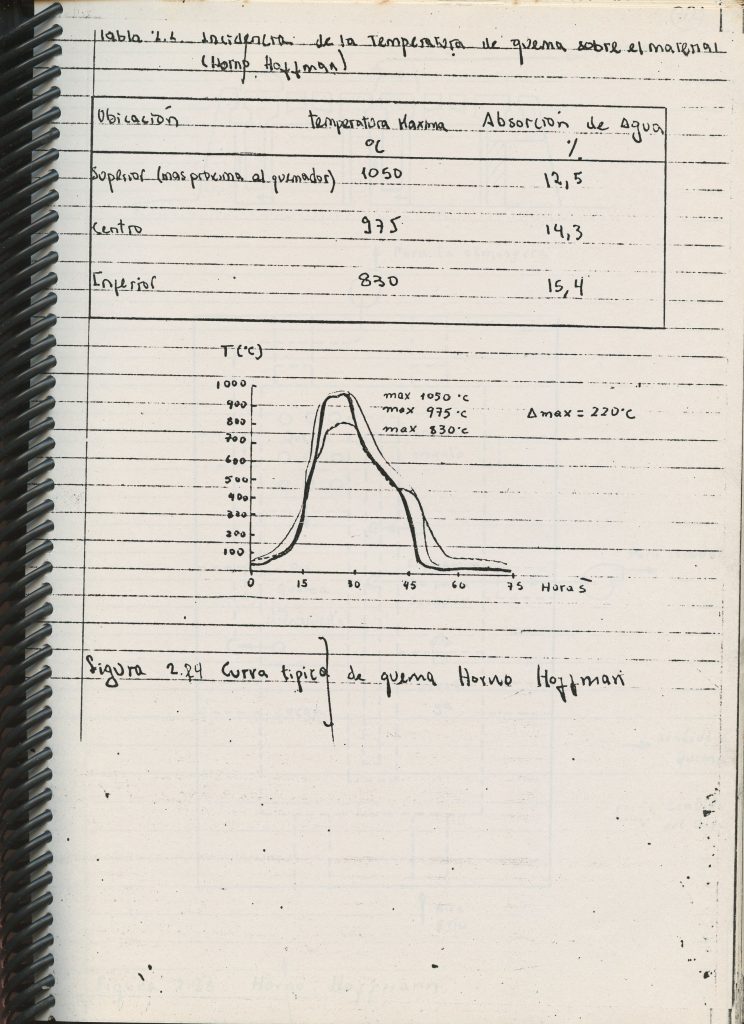 Tabla 2.2. Incidencia de la Temperatura de quema sobre el material
(Horno Hoffman)
Ubicación Temperatura Maxima Absorción de Agua
°C %
Superior (mas proxima al quemador) 1050 12,5
Centro 975 14,3
Inferior 830 15,4
T(°C)
1000
900
800
700
600
500
400
300
200
100
max 1050 °C
max 975 °C
max 830 °C
Δ max = 220°C
0 15 30 45 60 75 Horas
Figura 2.24 Curva tipica de quema Horno Hoffman